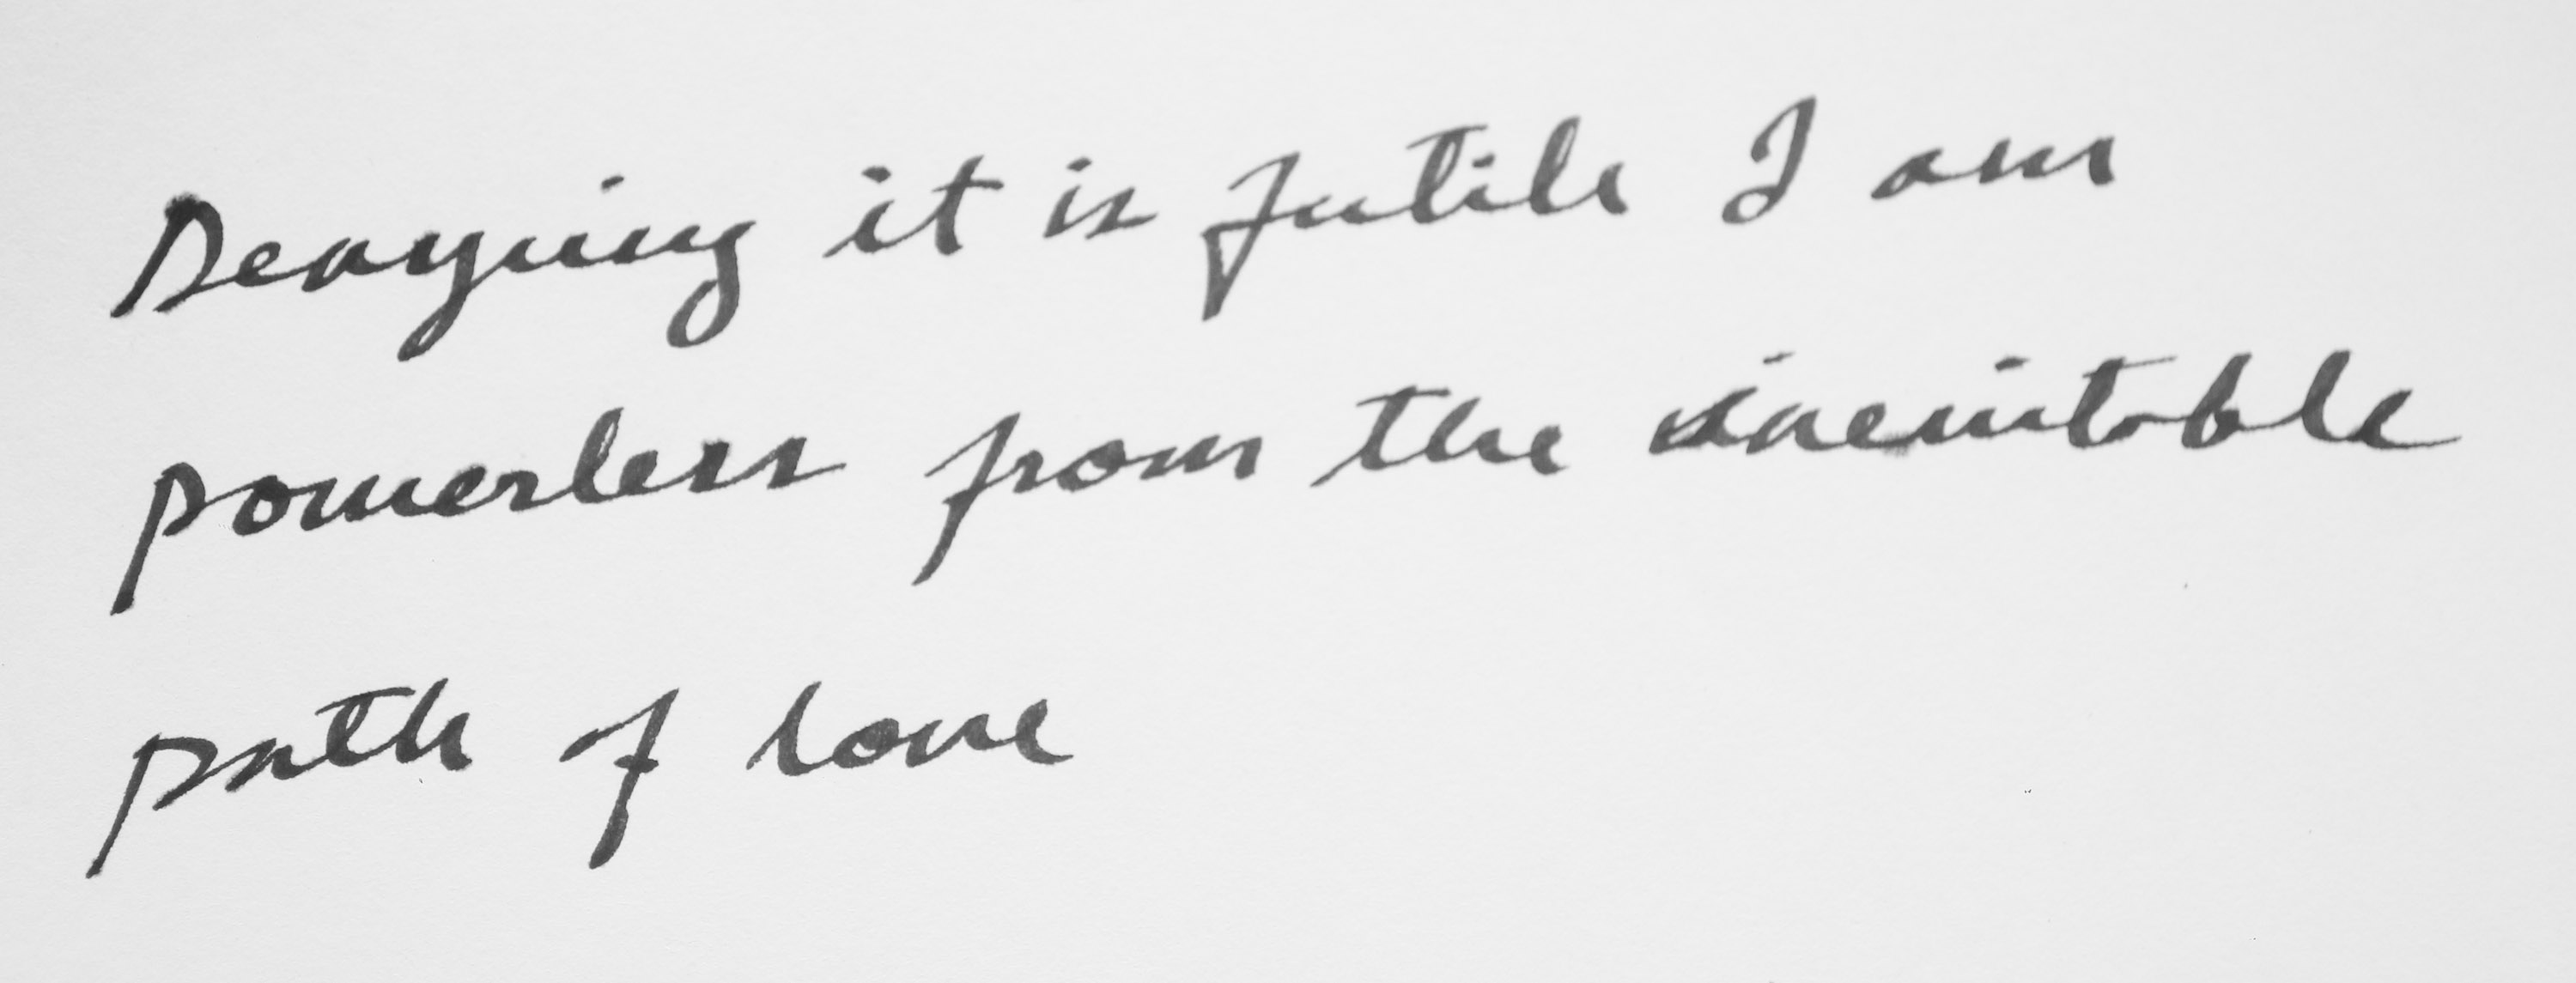 Denying it is futile I am
powerless from the inevitable
path of love